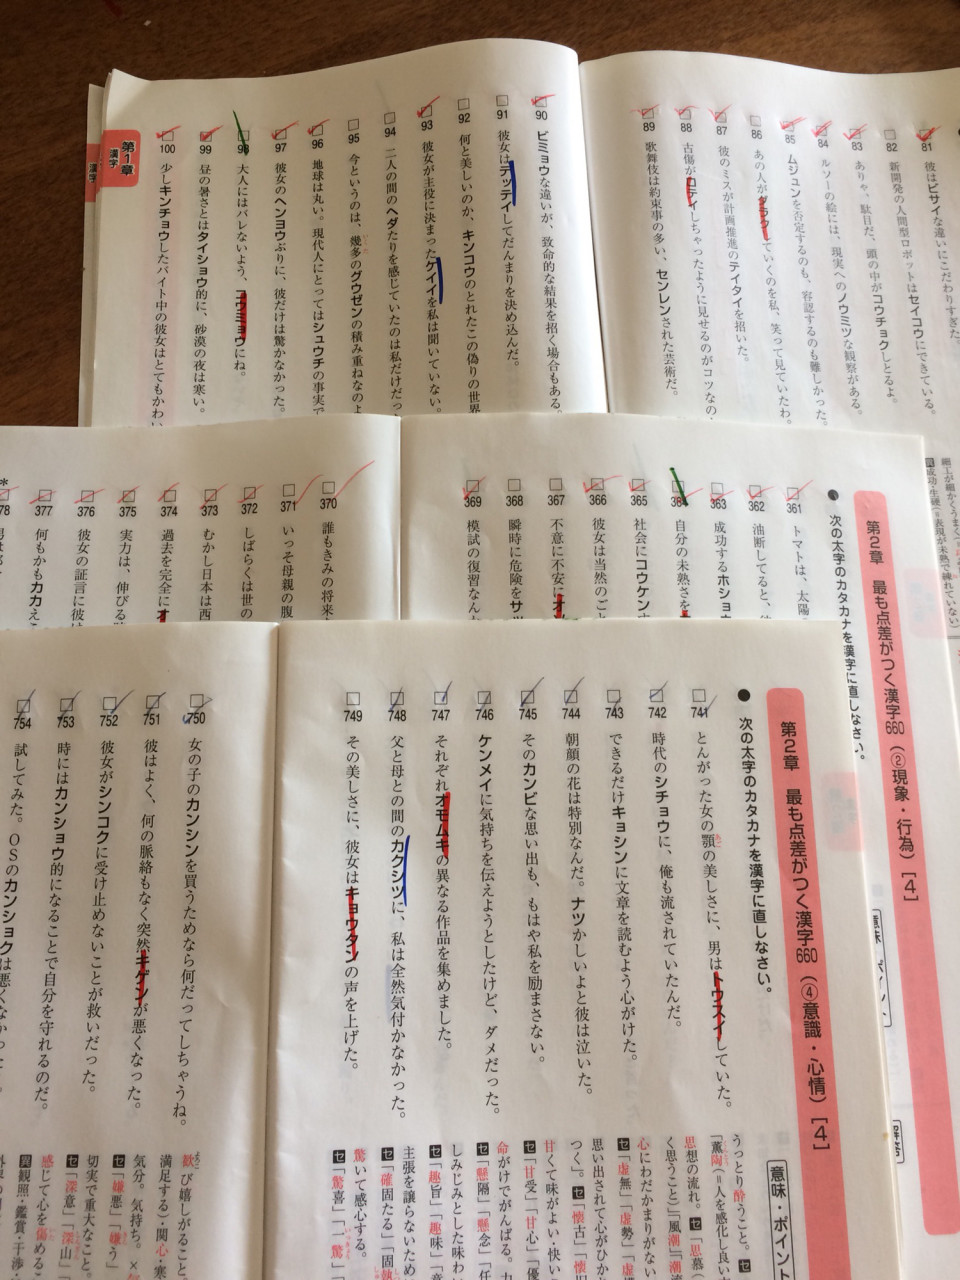 81 彼はビサイな違いにこだわりすぎた。
82 新開発の人間型ロボットはセイコウにできている。
83 ありゃ、駄目だ、頭の中がコウチョクしとるよ。
84 ルソーの絵には、現実へのノウミツな観察がある。
85 ムジュンを否定するのも、容認するのも難しかった。
86 あの人がダラクしていくのを私、笑って見ていたわ。
87 彼のミスが計画推進のテイタイを招いた。
88 古傷がコテイしちゃったように見せるのがコツなの
89 歌舞伎は約束事の多い、センレンされた芸術だ。
90 ビミョウな違いが、致命的な結果を招く場合もある。
91 彼女はテッテイしてだんまりを決め込んだ。
92 何と美しいのか、キンコウのとれたこの偽りの世界
93 彼女が主役に決まったケイイを私は聞いていない。
94 二人の間のヘダたりを感じていたのは私だけだっ
95 今というのは、幾多のグウゼンの積み重ねなのよ
96 地球は丸い。現代人にとってはシュウチの事実で
97 彼女のヘンヨウぶりに、彼だけは驚かなかった。
98 大人にはバレないよう、コウミョウにね。
99 昼の暑さとはタイショウ的に、砂漠の夜は寒い。
100 少しキンチョウしたバイト中の彼女はとてもかわい
第1章
漢字
漢字
第2章 最も点差がつく漢字660 (②現象・行為) [4]
●次の太字のカタカナを漢字に直しなさい。
361 トマトは、太陽
362 油断してると、
363 成功するホショウ
384 自分の未熟さを
365 社会にコウケン
366 彼女は当然のごと
367 不意に不安にオ
368 瞬時に危険をサ
369 模試の復習なん
370 誰もきみの将来
371 いっそ母親の腹
372 しばらくは世の
373 むかし日本は西
374 過去を完全にオ
375 実力は、伸びる
376 彼女の証言に彼は
377 何もかもカカえこ
*
378
第2章 最も点差がつく漢字660 (④意識・心情) [4]
●次の太字のカタカナを漢字に直しなさい。
741 とんがった女の顎の美しさに、男はトウスイしていた。
742 時代のシチョウに、俺も流されていたんだ。
743 できるだけキョシンに文章を読むよう心がけた。
744 朝顔の花は特別なんだ。ナツかしいよと彼は泣いた。
745 そのカンビな思い出も、もはや私を励まさない。
746 ケンメイに気持ちを伝えようとしたけど、ダメだった。
747 それぞれオモムキの異なる作品を集めました。
748 父と母との間のカクシツに、私は全然気付かなかった。
749 その美しさに、彼女はキョウタンの声を上げた。
750 女の子のカンシンを買うためなら何だってしちゃうね。
751 彼はよく、何の脈絡もなく突然キゲンが悪くなった。
752 彼女がシンコクに受け止めないことが救いだった。
753 時にはカンショウ的になることで自分を守れるのだ。
754 試してみた。OSのカンショクは悪くなかった
意味・ポイント
うっとり酔うこと。セ
「薫陶(=人を感化し良い
思想の流れ。セ「思慕(
く思うこと)」「風潮」「潮流
心にわだかまりがない
セ「虚無」「虚勢」「虚
思い出されて心がひか
つく。セ「懐古」「懐旧
甘くて味がよい・快い
セ「甘受」「甘心」「優
命がけでがんばる。
セ「懸隔」「懸念」「任
しみじみとした味わい
セ「趣旨」「趣味」「意
主張を譲らないため
セ「確固たる」「固執
驚いて感心する。
セ「驚喜」「一驚」
歓び嬉しがること
満足する)・関心・寒
気分。気持ち。×
セ「嫌悪」「嫌う」
切実で重大なこと。
セ「深意」「深山」
感じて心を傷めるこ
異観照・鑑賞・干渉・